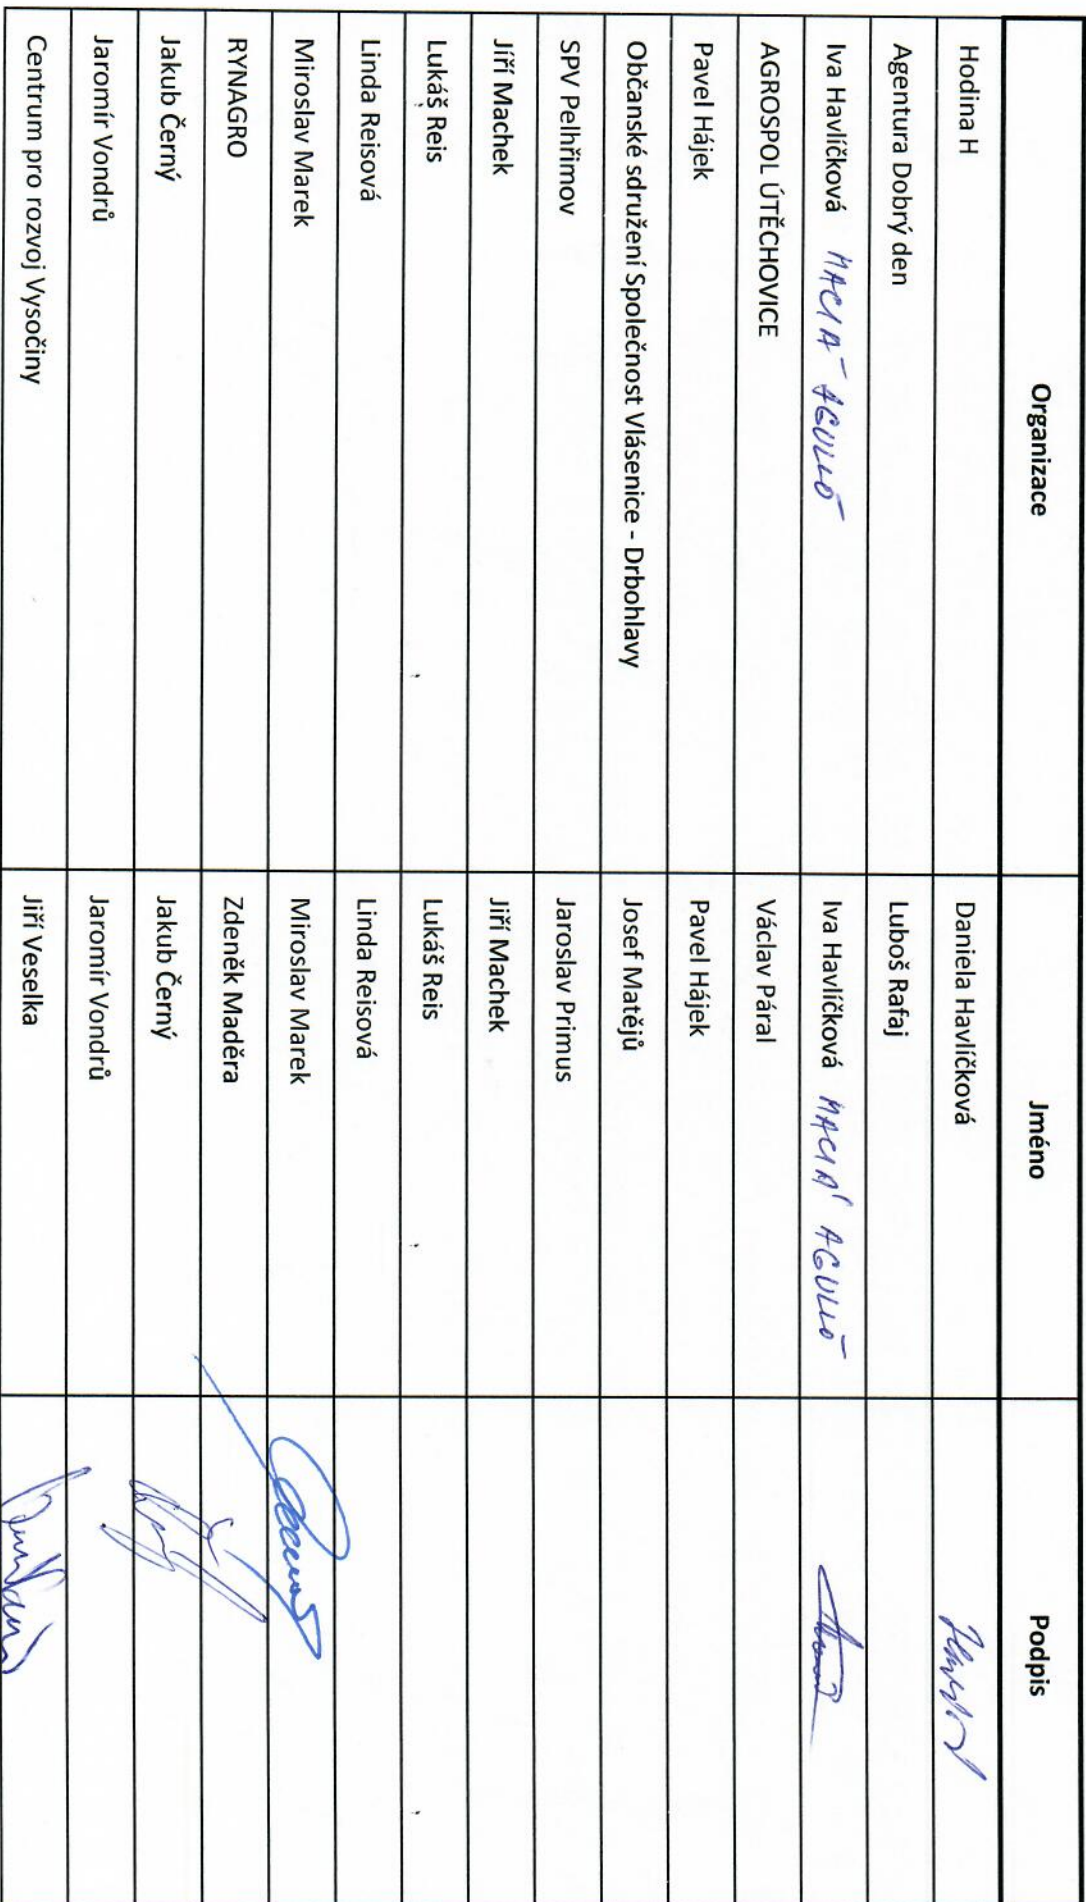 Organizace Jméno Podpis
Hodina H Daniela Havlíčková
Agentura Dobrý den Luboš Rafaj
Iva Havlíčková MACIÁ AGULLÓ Iva Havlíčková MACIÁ AGULLÓ
AGROSPOL ÚTĚCHOVICE Václav Páral
Pavel Hájek Pavel Hájek
Občanské sdružení Společnost Vlásenice - Drbohlavy Josef Matějů
SPV Pelhřimov Jaroslav Primus
Jíří Machek Jiří Machek
Lukáš Reis Lukáš Reis
Linda Reisová Linda Reisová
Miroslav Marek Miroslav Marek
RYNAGRO Zdeněk Maděra
Jakub Černý Jakub Černý
Jaromír Vondrů Jaromír Vondrů
Centrum pro rozvoj Vysočiny Jiří Veselka